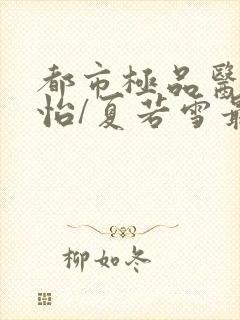 都市極品醫
怡/夏若雪最
柳如冬